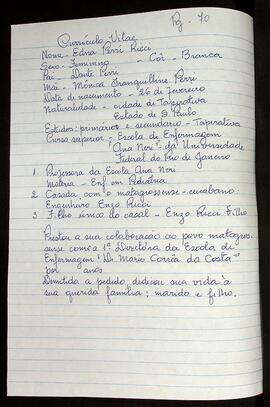 Pg - 70
Currículo Vitae
Nome - Edna Perri Ricci
Sexo - Feminino - Côr - Branca
Pai - Dante Perri
Mãe - Mônica Tranquilline Perri
Data de nascimento - 26 de fevereiro
Naturalidade - cidade de Taperativa
Estado de S. Paulo
Estudos: primários e secundário - Taperativa
Curso superior: "Escola de Enfermagem
"Ana Neri" da Universidade
Federal do Rio de Janeiro
1. Professora da Escola Ana Neri
Matéria - Enf. em Pediatria
2. Casada com o matogrossense - cuiabano:
Engenheiro Enzo Ricci
3. Filho único do casal - Enzo Ricci Filho
Prestou a sua colaboração ao povo matogros.
sense como a 1ª Diretora da Escola de
Enfermagem "Dr Mario Corrêa da Costa"
por anos
Demitida a pedido, dedicou sua vida à
sua querida família: marido e filho.